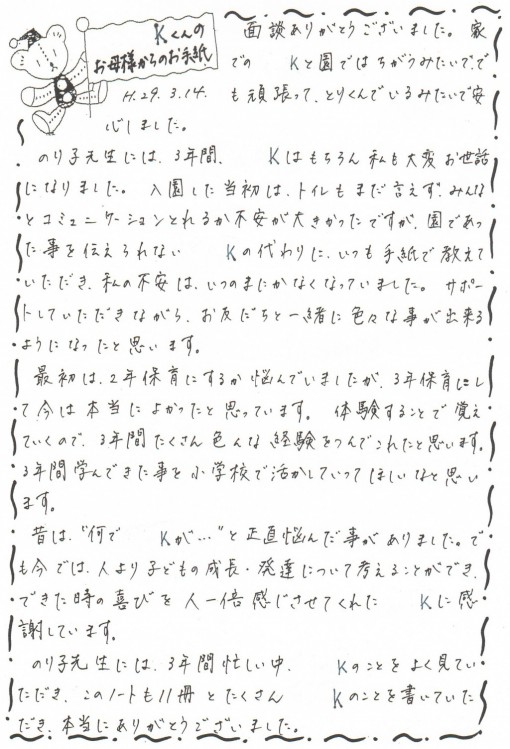 Kくんの
お母様からのお手紙
H.29.3.14.
面談ありがとうございました。家
での Kと園ではちがうみたいででで
も頑張って、とりくんでいるみたいで安
心しました。
のり子先生には、3年間、 Kはもちろん私も大変お世話
になりました。 入園した当初は、トイレもまだ言えず、みんな
とコミュニケーションとれるか不安が大きかったですが、園であっ
た事を伝えられない Kの代わりに、いつも手紙で教えて
いただき、私の不安は、いつのまにかなくなっていました。 サポー
トしていただきながら、お友だちと一緒に色々な事が出来る
ようになったと思います。
最初は、2年保育にするか悩んでいましたが、3年保育にし
て今は本当によかったと思っています。 体験することで覚え
ていくので、3年間たくさん色んな経験をつんでこれたと思います。
3年間学んできた事を小学校で活かしていってほしいなと思い
ます。
昔は、"何で Kが…"と正直悩んだ事がありました。で
も今では、人より子どもの成長・発達について考えることができ、
できた時の喜びを人一倍感じさせてくれた Kに感
謝しています。
のり子先生には、3年間忙しい中、 Kのことをよく見てい
ただき、このノートも11冊とたくさん Kのことを書いていた
だき、本当にありがとうございました。